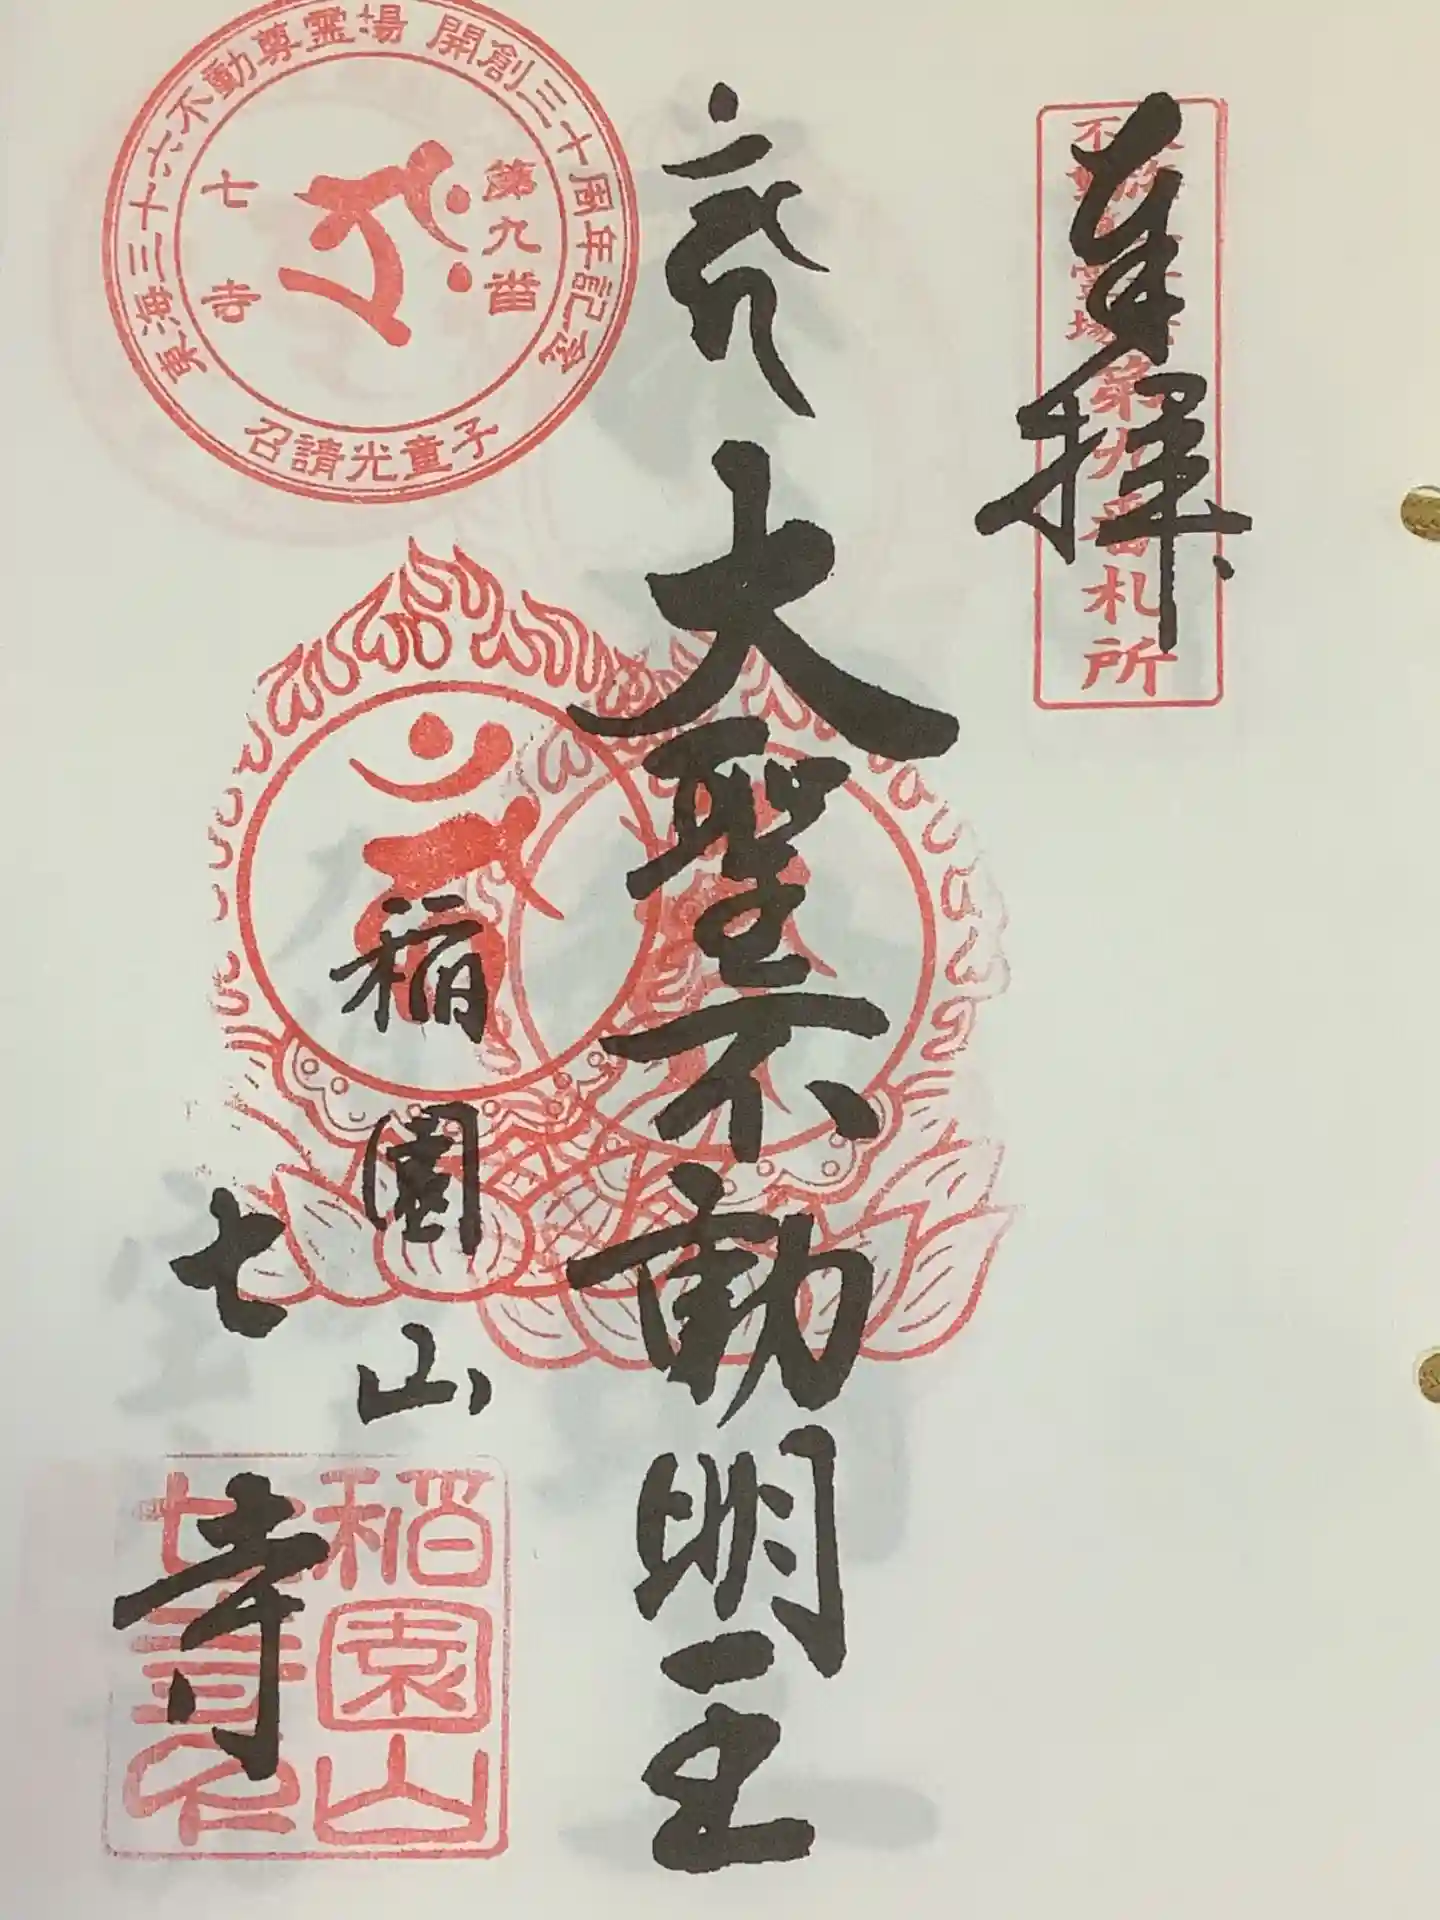 奉拝
東海三十六
不動尊霊場
第九番札所
大聖不動明王
稲園山
七寺
東海三十六不動尊霊場 開創三十周年記念
第九番
七寺
召請光童子
稲園山